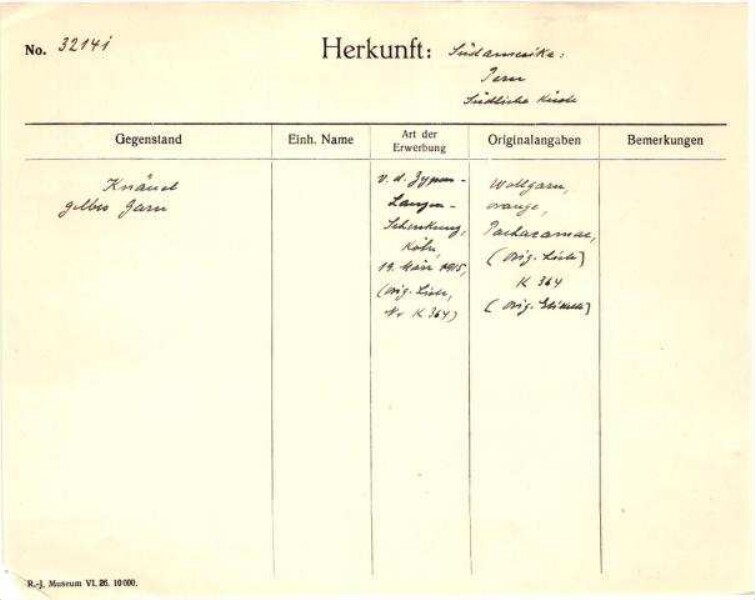 No. 32141
Herkunft: Südamerika:
Peru
Südliche Küste
Gegenstand
Einh. Name
Art der
Erwerbung
Originalangaben
Bemerkungen
Knäuel
gelbes Garn
v. d. Zypen-
Langen-
Schenkung,
Köln,
19. März 1915,
(orig. Liste,
Nr K 364)
Wollgarn,
orange,
Pachacamac,
(orig. Liste)
K 364
(orig. Etikette)
R.-J. Museum VI. 26. 10000.